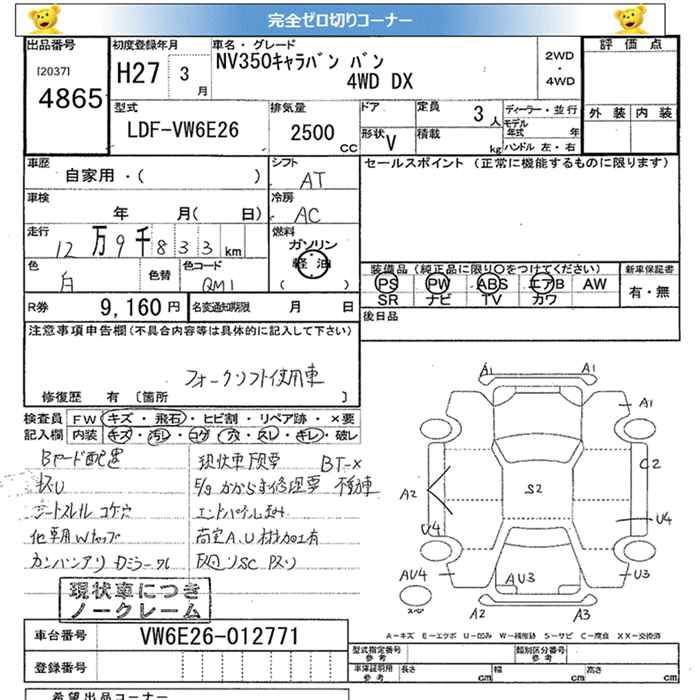 完全ゼロ切りコーナー
出品番号
[2037]
4865
初度登録年月
H27 3月
車名・グレード
NV350キャラバン バン
4WD DX
2WD
・
4WD
評価点
外装 内装
型式
LDF-VW6E26
排気量
2500
CC
ドア
形状 V
定員
3人
積載
kg
ディーラー・並行
モデル
年式 年
ハンドル 左・右
車歴
自家用・( )
シフト
AT
セールスポイント (正常に機能するものに限ります)
車検
年 月( 日)
冷房
AC
走行
12万9千833km
燃料
ガソリン
軽油
( )
色
白
色替
色コード
QM1
装備品 (純正品に限り○をつけてください)
PS PW ABS エアB AW
SR ナビ TV カワ
新車保証書
有・無
R券 9,160円
名変通知期限 月 日
後日品
注意事項申告欄(不具合内容等は具体的に記入して下さい)
フォークリフト使用車
修復歴 有 [箇所 ]
検査員
記入欄
FW キズ・飛石・ヒビ割・リペア跡・×要
内装 キズ・汚レ・コゲ・穴・スレ・キレ・破レ
現状車
BT-×
シートスレ コゲ穴
現状車につき
ノークレーム
A1 A1
A1
C2
A2
S2
V4
U4
AV4
AU3
U3
A2
A3
A-キズ E-エクボ U-凹み W-補修跡 S-サビ C-腐食 XX-交換済
車台番号
VW6E26-012771
登録番号
型式指定番号
参考
類別区分番号
参考
車体証明用
参考
長さ cm 幅 cm 高さ cm
希望出品コーナー